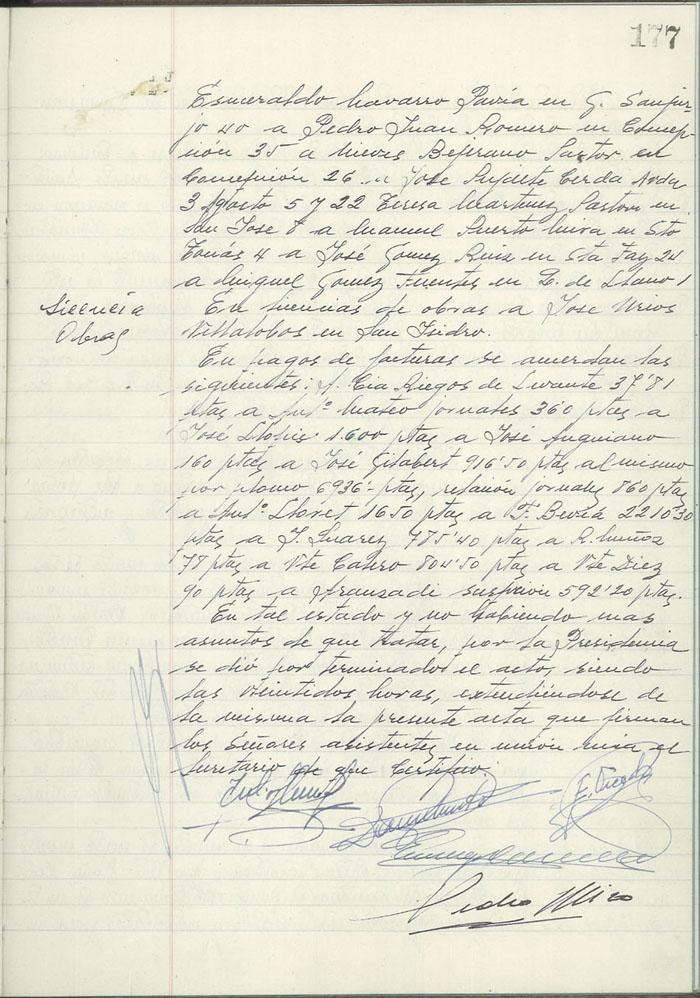 177
Esmeraldo Navarro Pavía en G. Sanjur-
jo 40 a Pedro Juan Romero en Concep-
ción 35 a Nieves Bejerano Pastor en
Concepción 26 a José Cerdá Avda
3 Agosto 5 y 22 Teresa Martinez Pastor en
San José 8 a Manuel Puerto Mira en Sto
Tomás 4 a José Gomez Ruiz en Sta Faz 24
a Miguel Gomez Fuentes en Q. de Llano 1
Licencia
Obras
En licencias de obras a Jose Urios
Villalobos en San Isidro.
En pagos de facturas se acuerdan las
siguientes: Cia Riegos de Levante 37'81
ptas a Antº Mateo jornales 360 ptas a
José Llopis 1.600 ptas a José Anguiano
160 ptas a José Gilabert 916'50 ptas al mismo
por plomo 6936'- ptas, relación jornales 860 ptas
a Antº Lloret 1650 ptas a F. Bevia 2210'30
ptas a J. Suarez 785'40 ptas a R. Muñoz
78 ptas a Vte Casero 804'50 ptas a Vte Diez
90 ptas a Aranzadi suscrición 592'20 ptas.
En tal estado y no habiendo mas
asuntos de que tratar, por la Presidencia
se dió por terminado el acto, siendo
las veintidos horas, extendiéndose de
la misma la presente acta que firman
los Señores asistentes en unión mia el
Secretario de que Certifico.
Pedro Mico